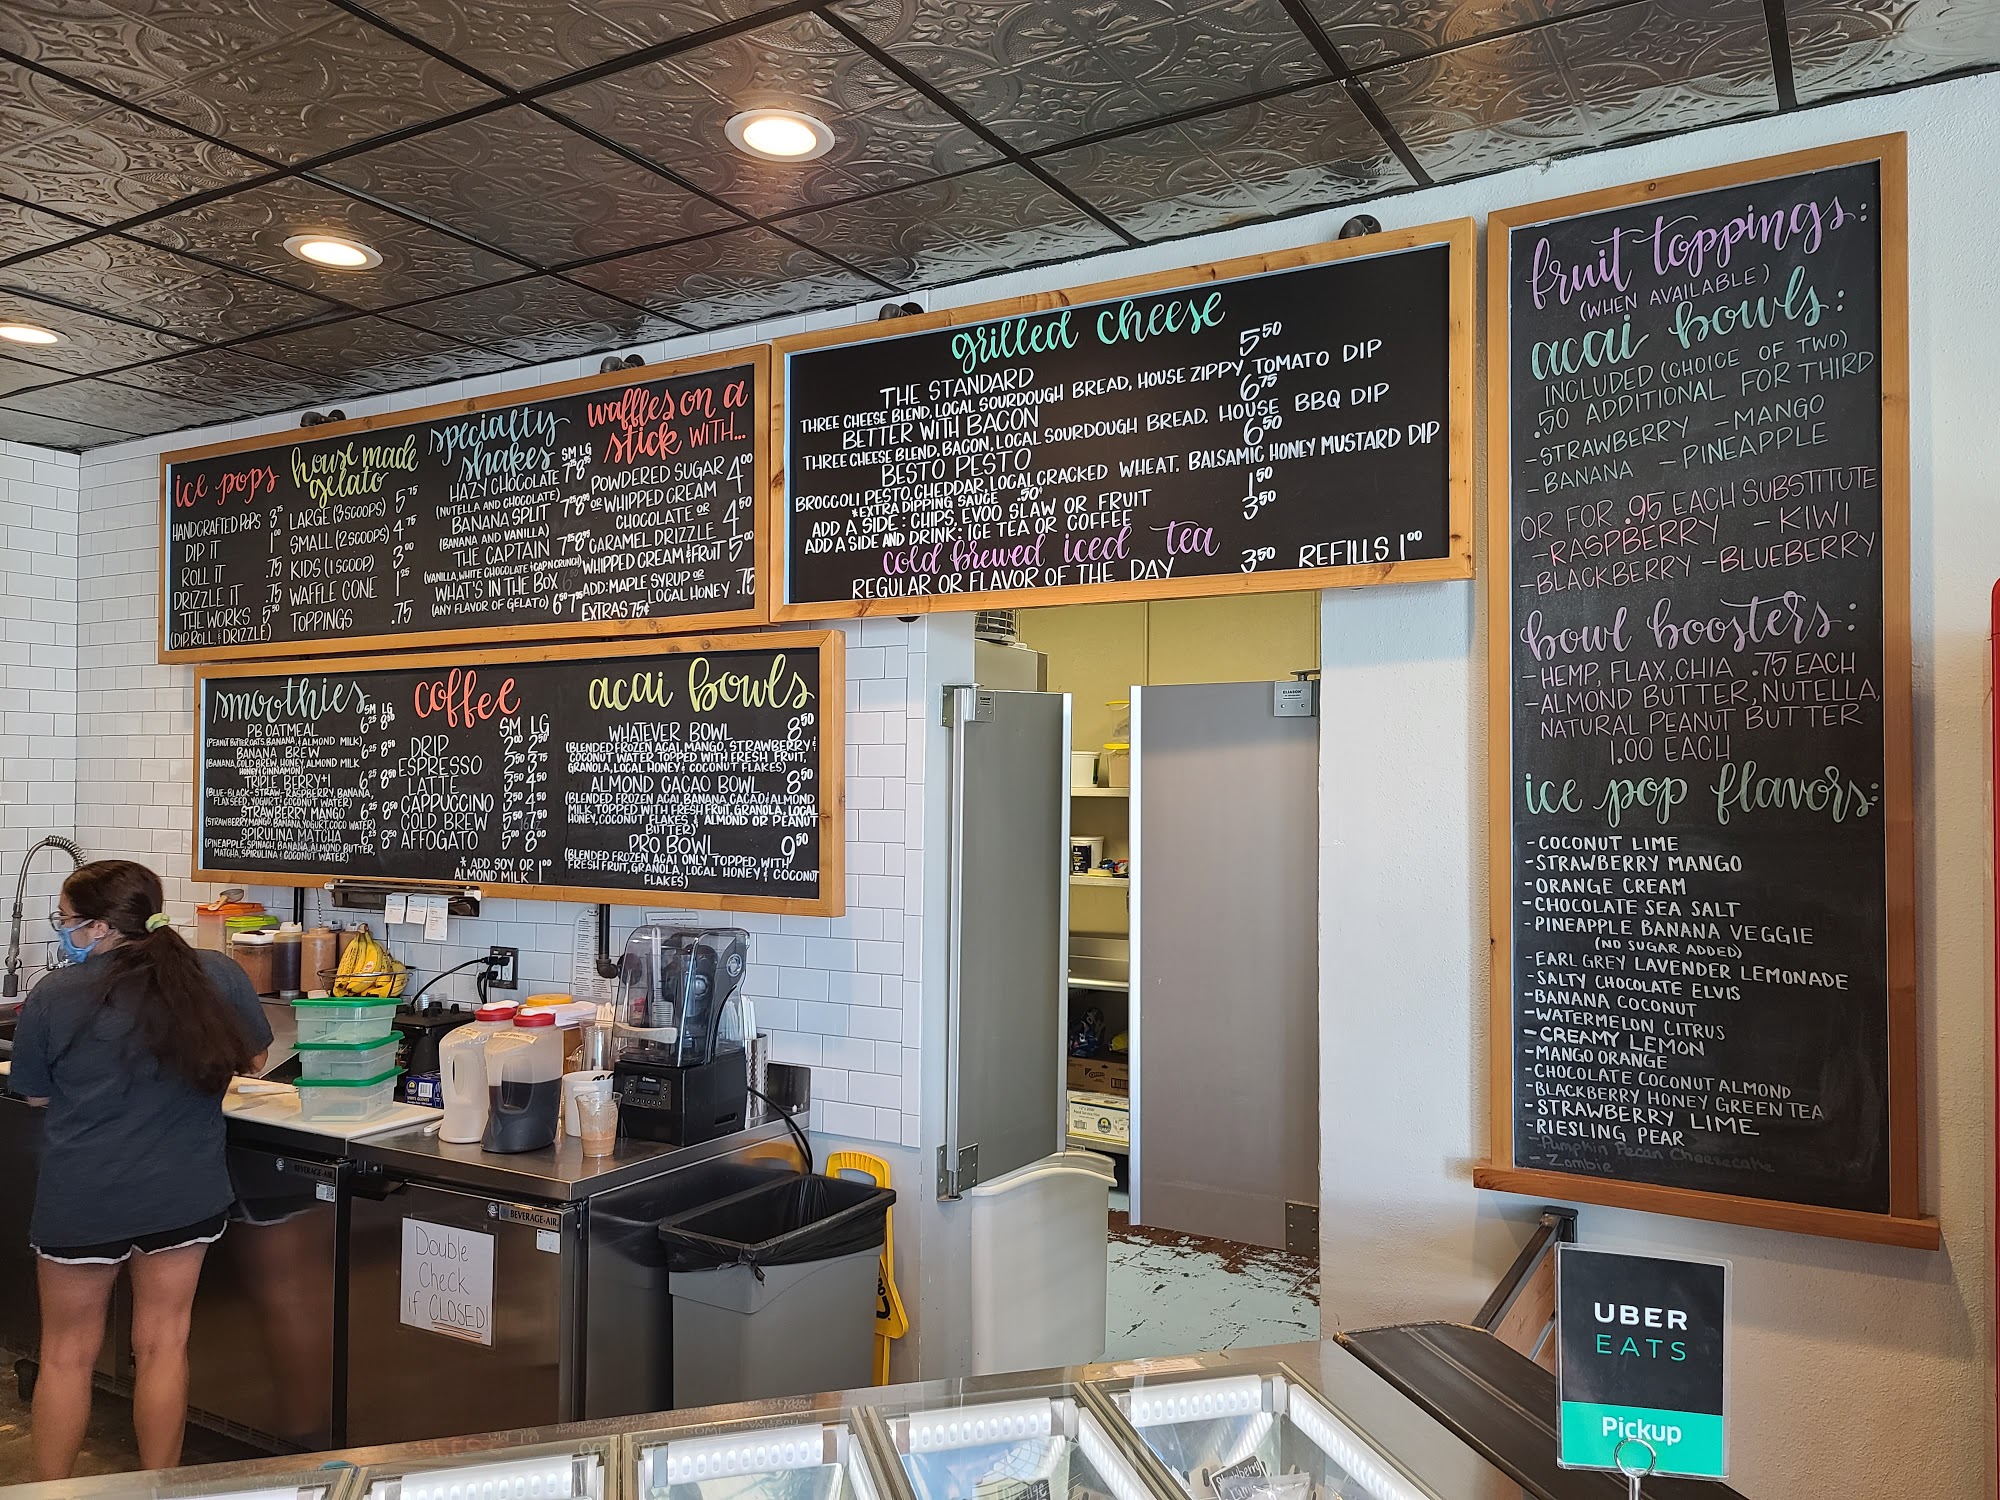 ice pops
HANDCRAFTED POPS 3.75
DIP IT 1.00
ROLL IT .75
DRIZZLE IT .75
THE WORKS 5.50
(DIP, ROLL, & DRIZZLE)
house made
gelato
LARGE (3 SCOOPS) 5.75
SMALL (2 SCOOPS) 4.75
KIDS (1 SCOOP) 3.00
WAFFLE CONE 1.25
TOPPINGS .75
specialty
shakes
SM LG
HAZY CHOCOLATE
(NUTELLA AND CHOCOLATE)
BANANA SPLIT
(BANANA AND VANILLA)
THE CAPTAIN
(VANILLA, WHITE CHOCOLATE & CAP'N CRUNCH)
WHAT'S IN THE BOX
(ANY FLAVOR OF GELATO)
waffles on a
stick WITH...
POWDERED SUGAR 4.00
OR WHIPPED CREAM
CHOCOLATE OR 4.50
CARAMEL DRIZZLE
WHIPPED CREAM & FRUIT 5.00
ADD: MAPLE SYRUP OR
LOCAL HONEY .75
EXTRAS 75¢
grilled cheese
THE STANDARD 5.50
THREE CHEESE BLEND, LOCAL SOURDOUGH BREAD, HOUSE ZIPPY TOMATO DIP
BETTER WITH BACON 6.75
THREE CHEESE BLEND, BACON, LOCAL SOURDOUGH BREAD. HOUSE BBQ DIP
BESTO PESTO 6.50
BROCCOLI PESTO, CHEDDAR, LOCAL CRACKED WHEAT. BALSAMIC HONEY MUSTARD DIP
*EXTRA DIPPING SAUCE .50¢
ADD A SIDE: CHIPS, EVOO SLAW OR FRUIT 1.50
ADD A SIDE AND DRINK: ICE TEA OR COFFEE 3.50
cold brewed iced tea
REGULAR OR FLAVOR OF THE DAY 3.50 REFILLS 1.00
smoothies
SM LG
PB OATMEAL 6.25 8.50
(PEANUT BUTTER, OATS, BANANA, & ALMOND MILK)
BANANA BREW 6.25 8.50
(BANANA, COLD BREW, HONEY, ALMOND MILK
HONEY & CINNAMON)
TRIPLE BERRY+1 6.25 8.50
(BLUE-BLACK-STRAW-RASPBERRY, BANANA,
FLAXSEED, YOGURT & COCONUT WATER)
STRAWBERRY MANGO 6.25 8.50
(STRAWBERRY, MANGO, BANANA, YOGURT, COCO WATER)
SPIRULINA MATCHA 6.25 8.50
(PINEAPPLE, SPINACH, BANANA, ALMOND BUTTER,
MATCHA, SPIRULINA & COCONUT WATER)
coffee
SM LG
DRIP 2.00 2.50
ESPRESSO 2.50 3.75
LATTE 3.50 4.50
CAPPUCCINO 3.50 4.50
COLD BREW
AFFOGATO 5.00 8.00
* ADD SOY OR 1.00
ALMOND MILK
acai bowls
WHATEVER BOWL 8.50
(BLENDED FROZEN ACAI, MANGO, STRAWBERRY &
COCONUT WATER TOPPED WITH FRESH FRUIT,
GRANOLA, LOCAL HONEY & COCONUT FLAKES)
ALMOND CACAO BOWL 8.50
(BLENDED FROZEN ACAI, BANANA, CACAO & ALMOND
MILK, TOPPED WITH FRESH FRUIT, GRANOLA, LOCAL
HONEY, COCONUT FLAKES, & ALMOND OR PEANUT
BUTTER)
PRO BOWL 9.50
(BLENDED FROZEN ACAI ONLY TOPPED WITH
FRESH FRUIT, GRANOLA, LOCAL HONEY & COCONUT
FLAKES)
fruit toppings:
(WHEN AVAILABLE)
acai bowls:
INCLUDED (CHOICE OF TWO)
.50 ADDITIONAL FOR THIRD
-STRAWBERRY -MANGO
-BANANA -PINEAPPLE
OR FOR .95 EACH SUBSTITUTE
-RASPBERRY -KIWI
-BLACKBERRY -BLUEBERRY
bowl boosters:
-HEMP, FLAX, CHIA .75 EACH
-ALMOND BUTTER, NUTELLA,
NATURAL PEANUT BUTTER
1.00 EACH
ice pop flavors:
-COCONUT LIME
-STRAWBERRY MANGO
-ORANGE CREAM
-CHOCOLATE SEA SALT
-PINEAPPLE BANANA VEGGIE
(NO SUGAR ADDED)
-EARL GREY LAVENDER LEMONADE
-SALTY CHOCOLATE ELVIS
-BANANA COCONUT
-WATERMELON CITRUS
-CREAMY LEMON
-MANGO ORANGE
-CHOCOLATE COCONUT ALMOND
-BLACKBERRY HONEY GREEN TEA
-STRAWBERRY LIME
-RIESLING PEAR
-Pumpkin Pecan Cheesecake
-Zombie
BEVERAGE-AIR
BEVERAGE-AIR
Double
Check
if CLOSED!
UBER
EATS
Pickup